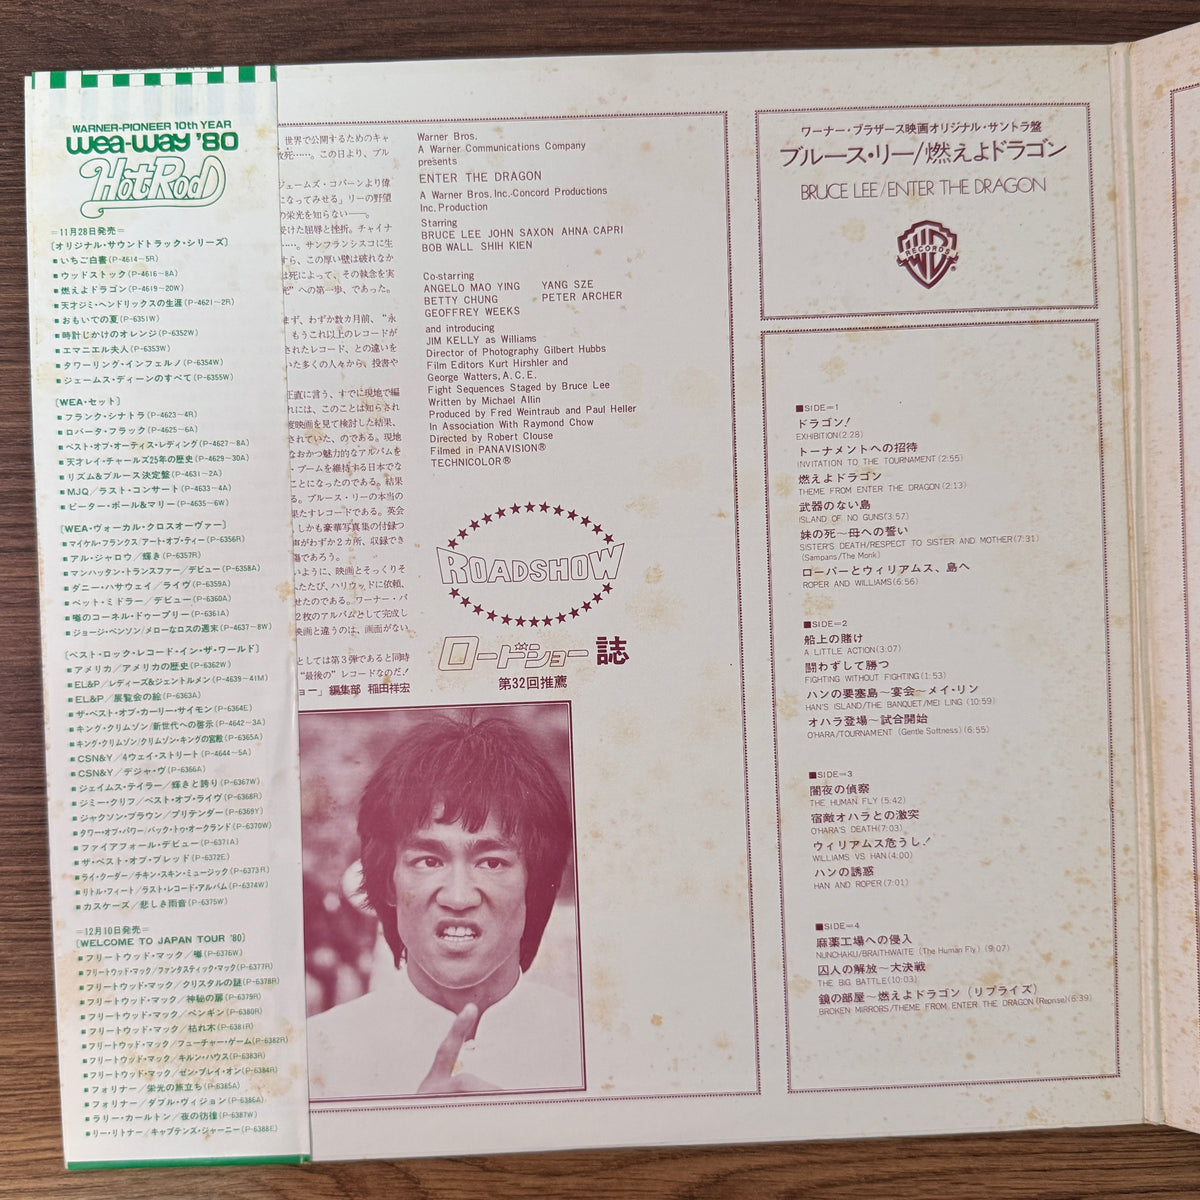 WARNER-PIONEER 10th YEAR
wea-way '80
HotRod
=11月28日発売=
[オリジナル・サウンドトラック・シリーズ]
■いちご白書(P-4614〜5R)
■ウッドストック(P-4616〜8A)
■燃えよドラゴン(P-4619〜20W)
■天才ジミ・ヘンドリックスの生涯(P-4621〜2R)
■おもいでの夏(P-6351W)
■時計じかけのオレンジ(P-6352W)
■エマニエル夫人(P-6353W)
■タワーリング・インフェルノ(P-6354W)
■ジェームス・ディーンのすべて(P-6355W)
[WEA・セット]
■フランク・シナトラ(P-4623〜4R)
■ロバータ・フラック(P-4625〜6A)
■ベスト・オブ・オーティス・レディング(P-4627〜8A)
■天才レイ・チャールズ25年の歴史(P-4629〜30A)
■リズム&ブルース決定盤(P-4631〜2A)
■MJQ/ラスト・コンサート(P-4633〜4A)
■ピーター・ポール&マリー(P-4635〜6W)
[WEA・ヴォーカル・クロスオーヴァー]
■マイケル・フランクス/アート・オブ・ティー(P-6356R)
■アル・ジャロウ/輝き(P-6357R)
■マンハッタン・トランスファー/デビュー(P-6358A)
■ダニー・ハサウェイ/ライヴ(P-6359A)
■ベット・ミドラー/デビュー(P-6360A)
■噂のコーネル・ドゥープリー(P-6361A)
■ジョージ・ベンソン/メローなロスの週末(P-4637〜8W)
[ベスト・ロック・レコード・イン・ザ・ワールド]
■アメリカ/アメリカの歴史(P-6362W)
■EL&P/レディーズ&ジェントルメン(P-4639〜41M)
■EL&P/展覧会の絵(P-6363A)
■ザ・ベスト・オブ・カーリー・サイモン(P-6364E)
■キング・クリムゾン/新世代への啓示(P-4642〜3A)
■キング・クリムゾン/クリムゾン・キングの宮殿(P-6365A)
■CSN&Y/4ウェイ・ストリート(P-4644〜5A)
■CSN&Y/デジャ・ヴ(P-6366A)
■ジェイムス・テイラー/輝きと誇り(P-6367W)
■ジミー・クリフ/ベスト・オブ・ライヴ(P-6368R)
■ジャクソン・ブラウン/プリテンダー(P-6369Y)
■タワー・オブ・パワー/バック・トゥ・オークランド(P-6370W)
■ファイアフォール・デビュー(P-6371A)
■ザ・ベスト・オブ・ブレッド(P-6372E)
■ライ・クーダー/チキン・スキン・ミュージック(P-6373R)
■リトル・フィート/ラスト・レコード・アルバム(P-6374W)
■カスケーズ/悲しき雨音(P-6375W)
=12月10日発売=
[WELCOME TO JAPAN TOUR '80]
■フリートウッド・マック/噂(P-6376W)
■フリートウッド・マック/ファンタスティック・マック(P-6377R)
■フリートウッド・マック/クリスタルの謎(P-6378R)
■フリートウッド・マック/神秘の扉(P-6379R)
■フリートウッド・マック/ペンギン(P-6380R)
■フリートウッド・マック/枯れ木(P-6381R)
■フリートウッド・マック/フューチャー・ゲーム(P-6382R)
■フリートウッド・マック/キルン・ハウス(P-6383R)
■フリートウッド・マック/ゼン・プレイ・オン(P-6384R)
■フォリナー/栄光の旅立ち(P-6385A)
■フォリナー/ダブル・ヴィジョン(P-6386A)
■ラリー・カールトン/夜の彷徨(P-6387W)
■リー・リトナー/キャプテンズ・ジャーニー(P-6388E)
世界で公開するためのキャ
死……。この日より、ブル
ジェームズ・コバーンより偉
になってみせる」リーの野望
の栄光を知らない――。
受けた屈辱と挫折。チャイナ
……。サンフランシスコに生
すら、この厚い壁は破れなか
は死によって、その執念を実
光"への第一歩、であった。
まず、わずか数カ月前、"永
もうこれ以上のレコードが
されたレコード、との違いを
いた多くの人々から、投書や
正直に言う、すでに現地で編
れには、このことは知らされ
度映画を見て検討した結果、
されていた、のである。現地
なおかつ魅力的なアルバムを
・ブームを維持する日本でな
ことになったのである。結果
る。ブルース・リーの本当の
果たすレコードである。英会
しかも豪華写真集の付録つ
声がわずか2カ所、収録でき
傷であろう。
いように、映画とそっくりそ
ふたたび、ハリウッドに依頼、
せたのである。ワーナー・パ
2枚のアルバムとして完成し
映画と違うのは、画面がない
としては第3弾であると同時
"最後の"レコードなのだ!
ョー」編集部 稲田祥宏
Warner Bros.
A Warner Communications Company
presents
ENTER THE DRAGON
A Warner Bros. Inc.-Concord Productions
Inc. Production
Starring
BRUCE LEE JOHN SAXON AHNA CAPRI
BOB WALL SHIH KIEN
Co-starring
ANGELO MAO YING YANG SZE
BETTY CHUNG PETER ARCHER
GEOFFREY WEEKS
and introducing
JIM KELLY as Williams
Director of Photography Gilbert Hubbs
Film Editors Kurt Hirshler and
George Watters, A.C.E.
Fight Sequences Staged by Bruce Lee
Written by Michael Allin
Produced by Fred Weintraub and Paul Heller
In Association With Raymond Chow
Directed by Robert Clouse
Filmed in PANAVISION®
TECHNICOLOR®
ROADSHOW
ロードショー誌
第32回推薦
ワーナー・ブラザース映画オリジナル・サントラ盤
ブルース・リー/燃えよドラゴン
BRUCE LEE/ENTER THE DRAGON
WB RECORDS
■SIDE=1
ドラゴン!
EXHIBITION(2:28)
トーナメントへの招待
INVITATION TO THE TOURNAMENT(2:55)
燃えよドラゴン
THEME FROM ENTER THE DRAGON(2:13)
武器のない島
ISLAND OF NO GUNS(3:57)
妹の死〜母への誓い
SISTER'S DEATH/RESPECT TO SISTER AND MOTHER(7:31)
(Sampans/The Monk)
ローパーとウィリアムス、島へ
ROPER AND WILLIAMS(6:56)
■SIDE=2
船上の賭け
A LITTLE ACTION(3:07)
闘わずして勝つ
FIGHTING WITHOUT FIGHTING(1:53)
ハンの要塞島〜宴会〜メイ・リン
HAN'S ISLAND/THE BANQUET/MEI LING (10:59)
オハラ登場〜試合開始
O'HARA/TOURNAMENT (Gentle Softness) (6:55)
■SIDE=3
闇夜の偵察
THE HUMAN FLY(5:42)
宿敵オハラとの激突
O'HARA'S DEATH(7:03)
ウィリアムス危うし!
WILLIAMS VS HAN(4:00)
ハンの誘惑
HAN AND ROPER(7:01)
■SIDE=4
麻薬工場への侵入
NUNCHAKU/BRAITHWAITE (The Human Fly) (9:07)
囚人の解放〜大決戦
THE BIG BATTLE(10:03)
鏡の部屋〜燃えよドラゴン(リプライズ)
BROKEN MIRROBS/THEME FROM ENTER THE DRAGON(Reprise)(6:39)